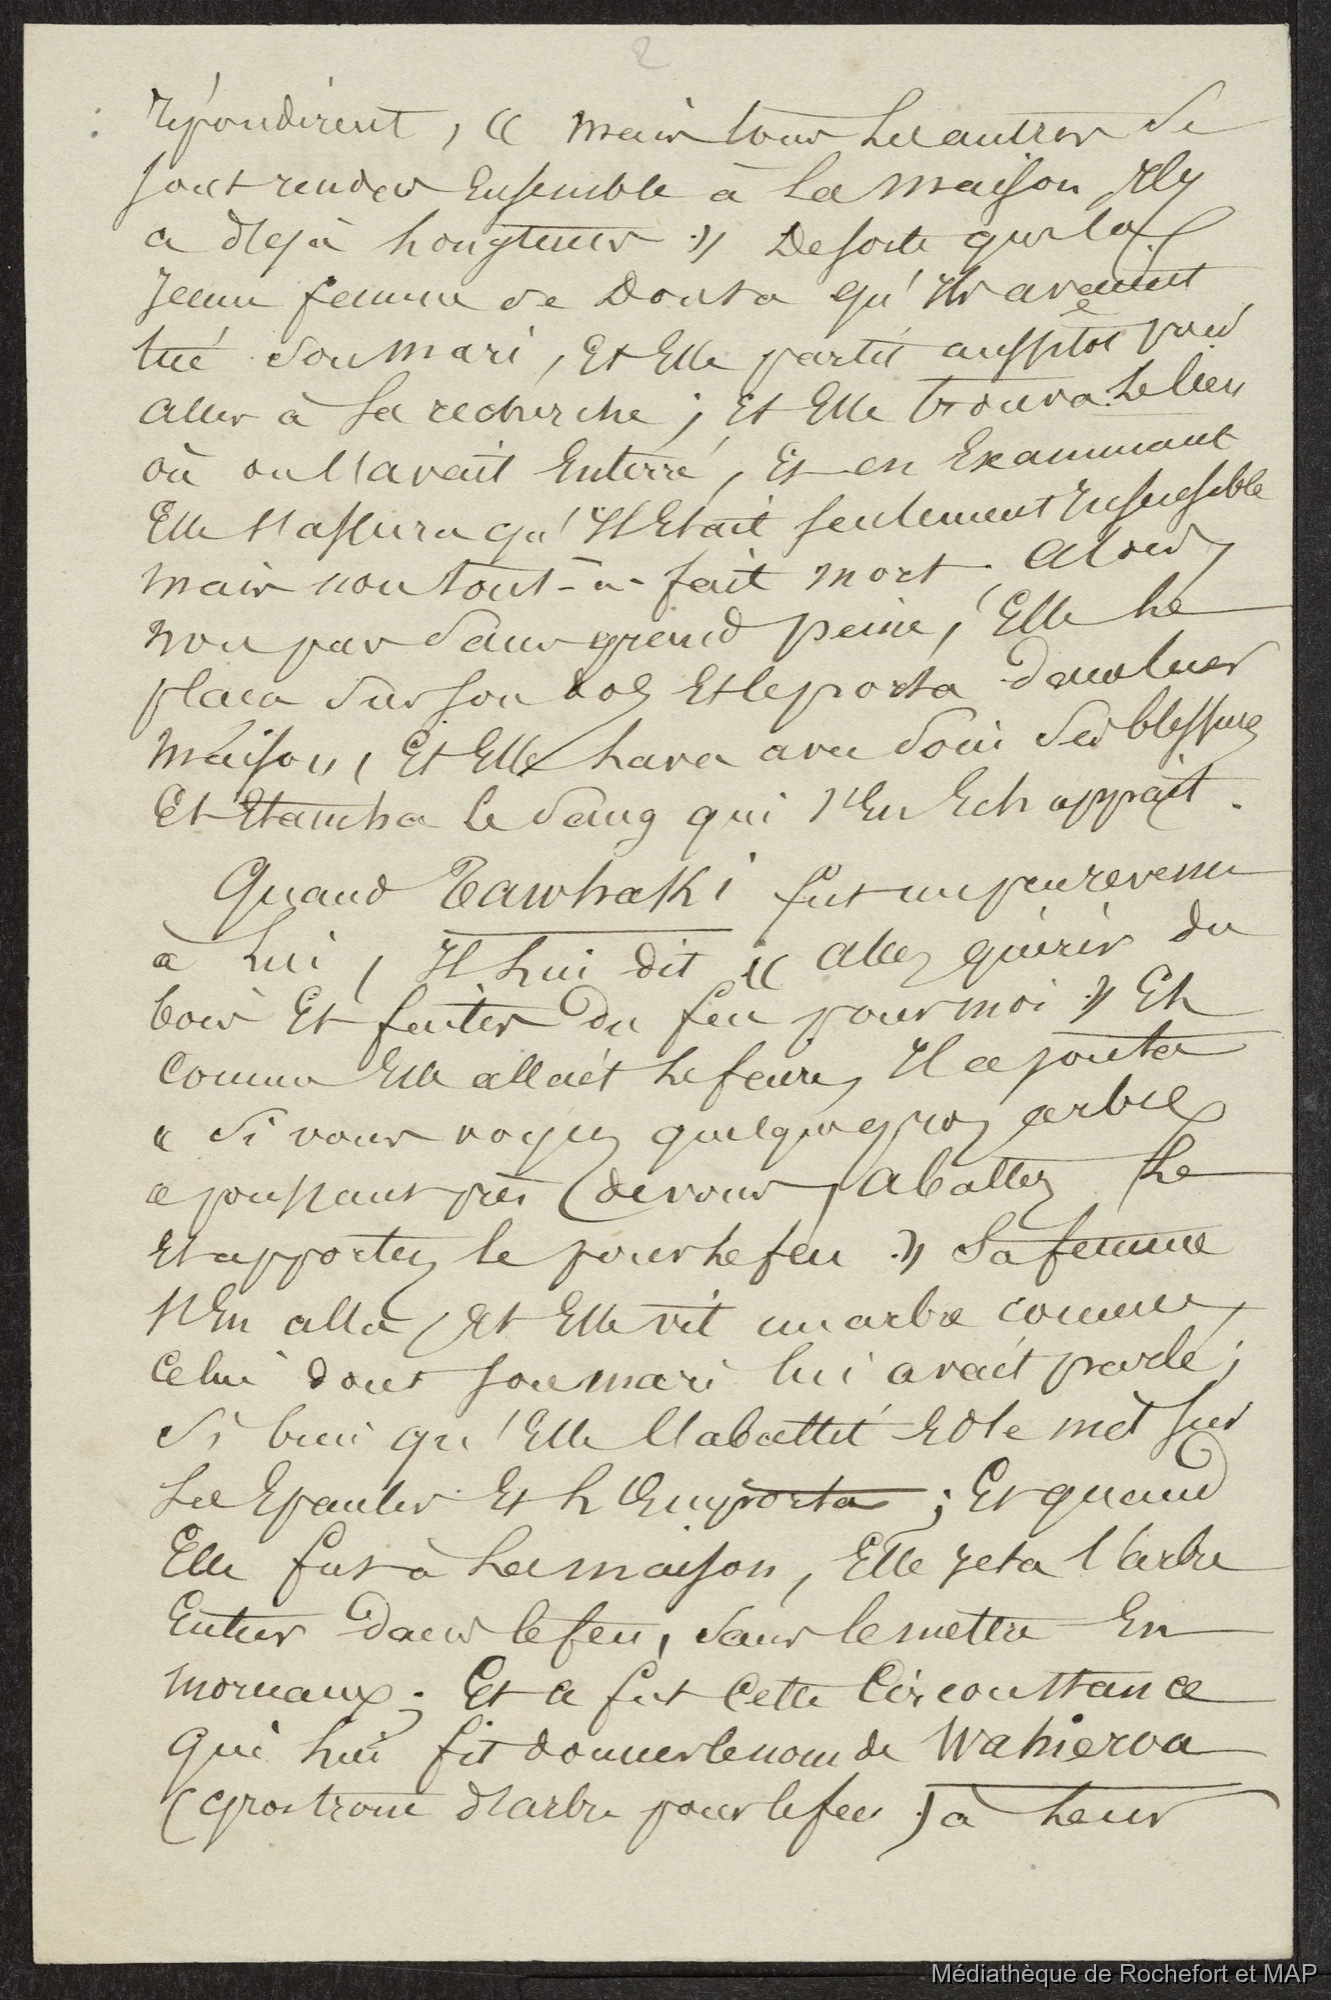 2
répondirent, « mais tous les autres se
sont rendus ensemble à la maison, il y
a déjà longtemps. » De sorte que la
jeune femme se douta qu'ils avaient
tué son mari, et elle partit aussitôt pour
aller à sa recherche ; et elle trouva le lieu
où on l'avait enterré, et en examinant
elle s'assura qu'il était seulement insensible
mais non tout-à-fait mort. alors,
non pas sans grand peine, elle le
plaça sur son dos et le porta dans leur
maison, et elle lava avec soin ses blessures
et étancha le sang qui s'en échappait.
Quand Tawhaki fut un peu revenu
à lui, il lui dit « allez quérir du
bois et faites du feu pour moi. » Et
comme elle allait le faire, il ajouta
« si vous voyez quelque gros arbre
« poussant près de vous, abattez le
et apportez le pour le feu. » Sa femme
s'en alla, et elle vit un arbre comme
celui dont son mari lui avait parlé ;
si bien qu'elle l'abattit et le mit sur
les épaules et l'emporta ; et quand
elle fut à la maison, elle jeta l'arbre
entier dans le feu, sans le mettre en
morceaux ; et ce fut cette circonstance
qui lui fit donner le nom de Wahieroa
(gros tronc d'arbre pour le feu) à leur
Médiathèque de Rochefort et MAP